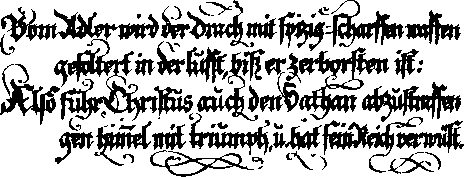 Vom Adler wird der Drach mit spizig-scharffen waffen
gefältert in der lufft, biß er zerborsten ist:
Also fuhr Christus auch den Sathan abzustraffen
gen himel mit triumph, u. hat sein Reich verwüst.